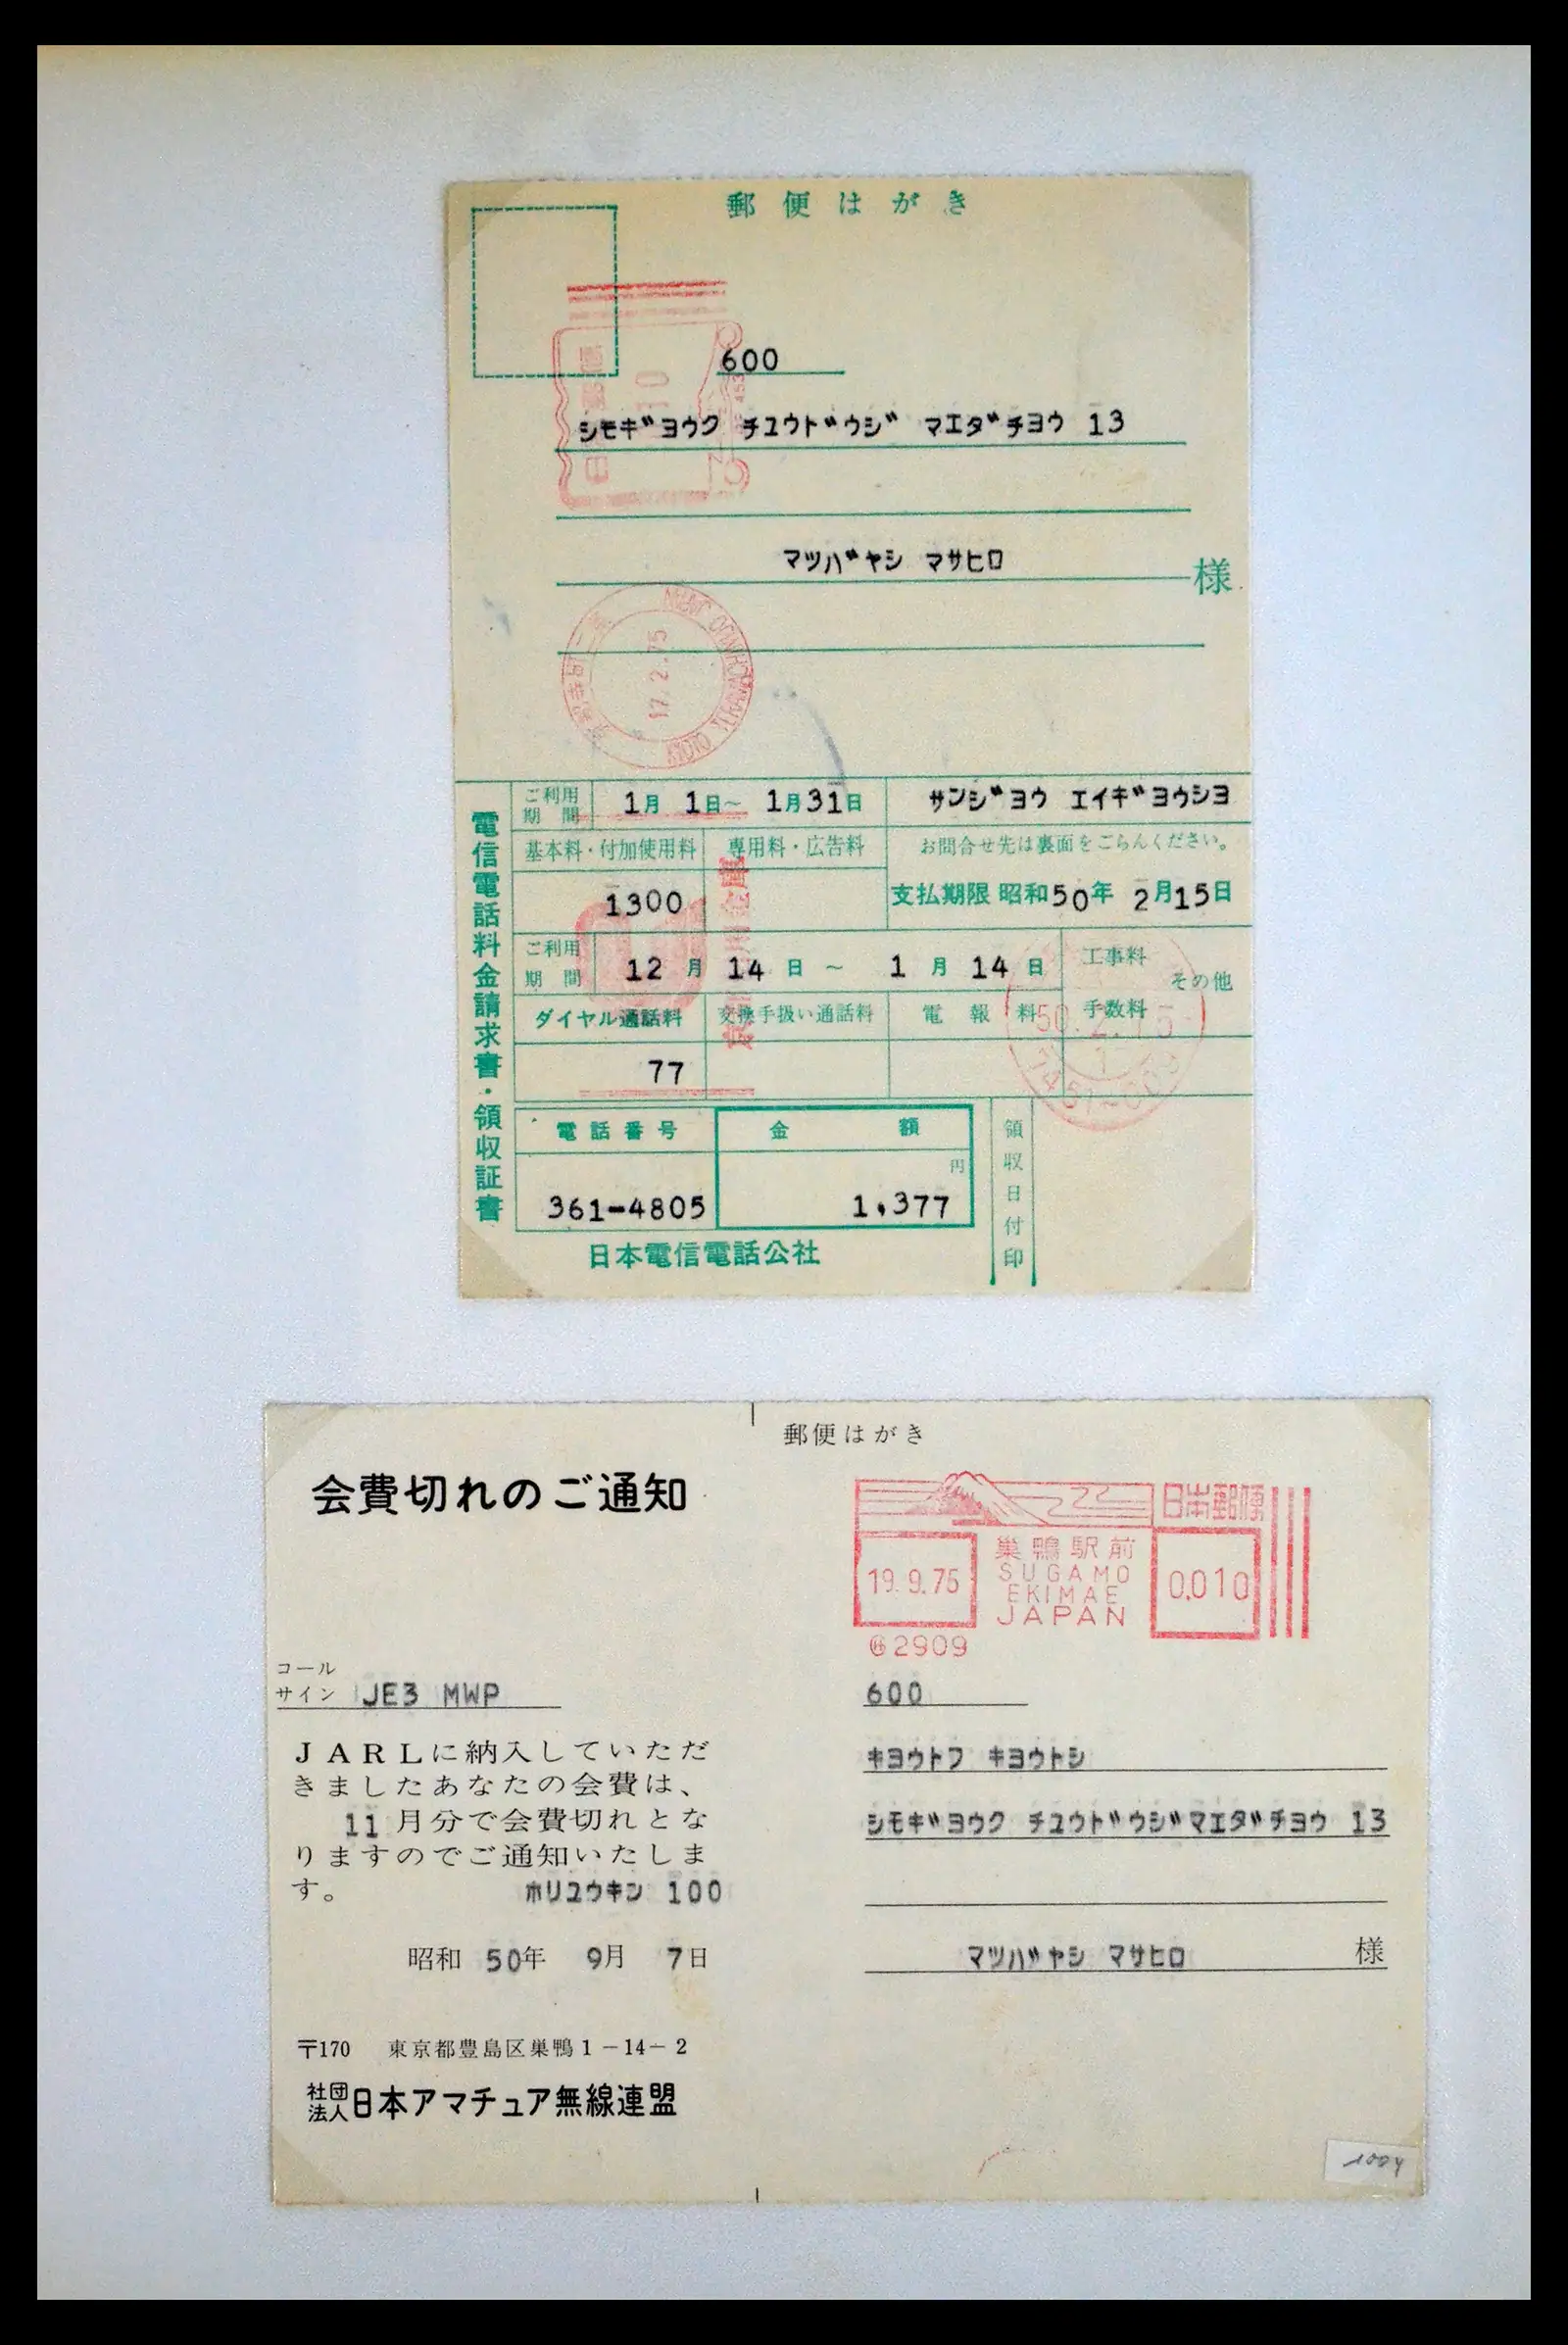 郵便はがき
600
シモギヨウク チユウドウジ マエダチヨウ 13
マツバヤシ マサヒロ
様
17.2.75
電信電話料金請求書・領収証書
ご利用期間 1月 1日~ 1月31日
サンジヨウ エイギヨウシヨ
基本料・付加使用料 専用料・広告料
お問合せ先は裏面をごらんください。
1300
支払期限 昭和50年 2月15日
ご利用期間 12月 14日 ~ 1月 14日
工事料
手数料
その他
ダイヤル通話料 交換手扱い通話料 電報料
50.2.15
77
電話番号 金額
領収日付印
円
361-4805 1,377
日本電信電話公社
郵便はがき
会費切れのご通知
日本郵便
19.9.75
巣鴨駅前
SUGAMO
EKIMAE
JAPAN
0,010
2909
コール
サイン JE3 MWP
JARLに納入していただ
きましたあなたの会費は、
11月分で会費切れとな
りますのでご通知いたしま
す。 ホリユウキン 100
昭和 50年 9月 7日
〒170 東京都豊島区巣鴨1-14-2
社団法人日本アマチュア無線連盟
600
キヨウトフ キヨウトシ
シモギヨウク チユウドウジマエダチヨウ 13
マツバヤシ マサヒロ 様